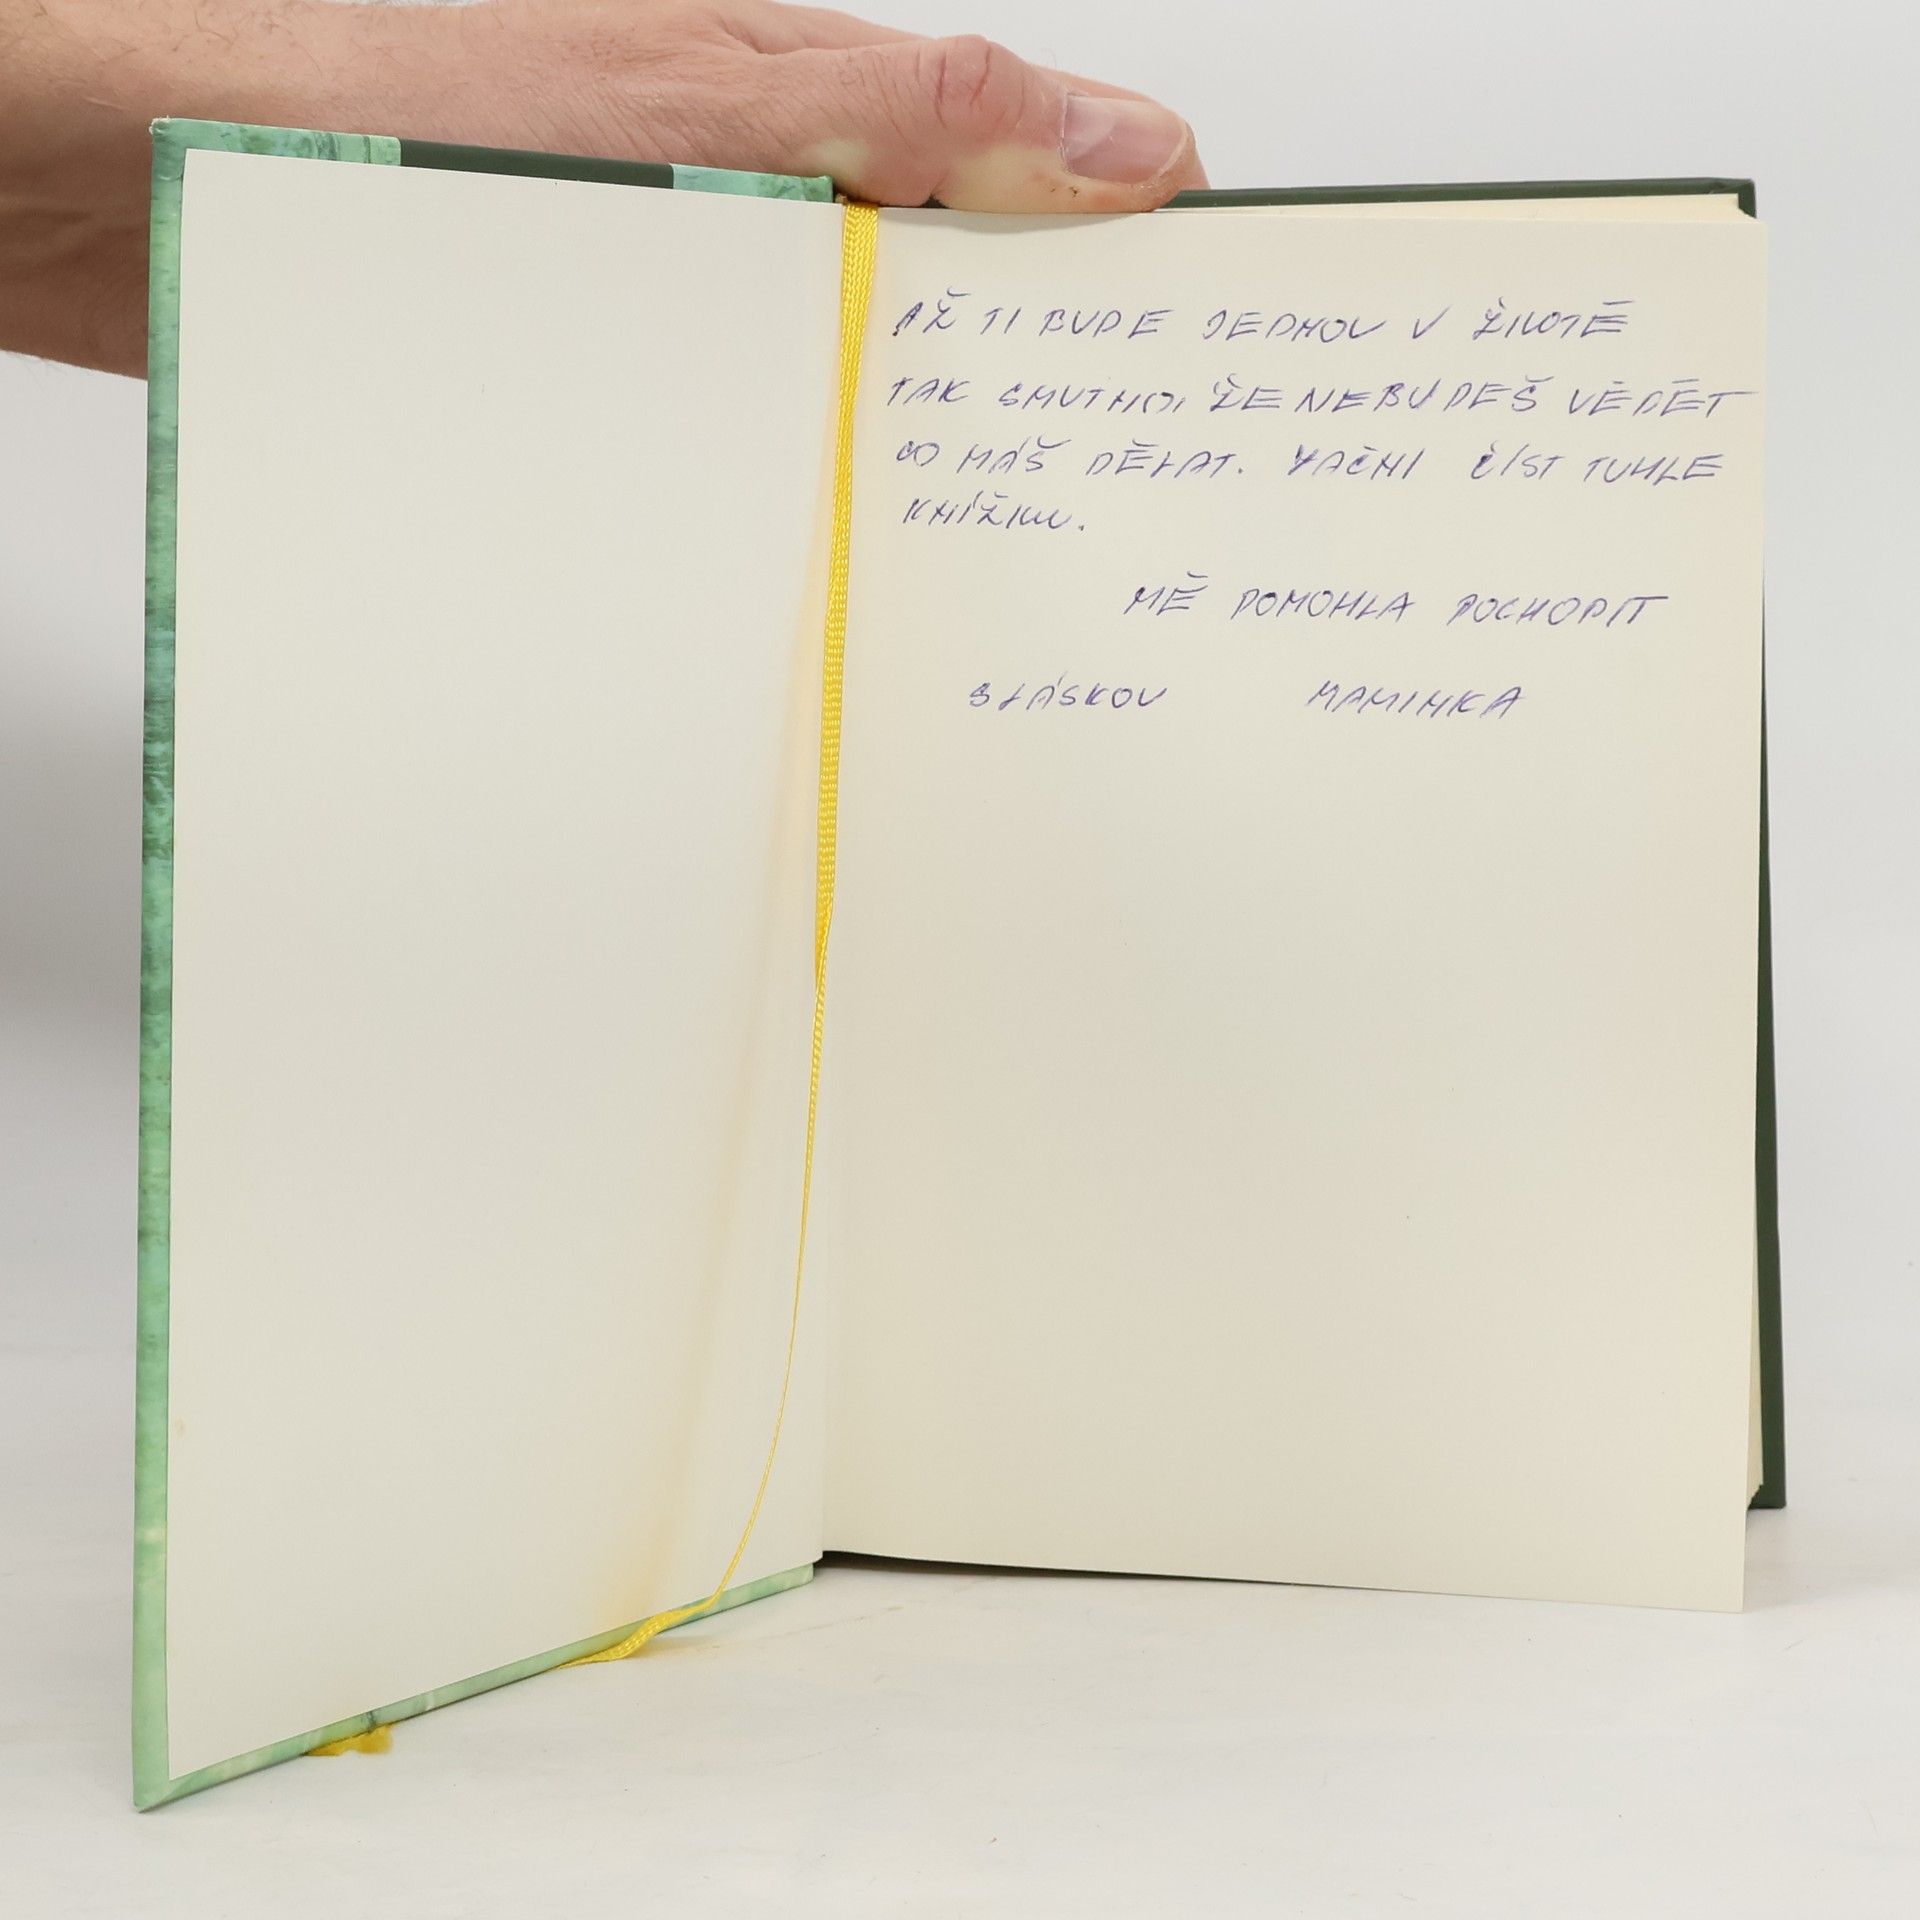 AŽ TI BUDE JEDNOU V ŽIVOTĚ
TAK SMUTNO, ŽE NEBUDEŠ VĚDĚT
CO MÁŠ DĚLAT. ZAČNI ČÍST TUHLE
KNÍŽKU.
MĚ POMOHLA POCHOPIT
S LÁSKOU MAMINKA